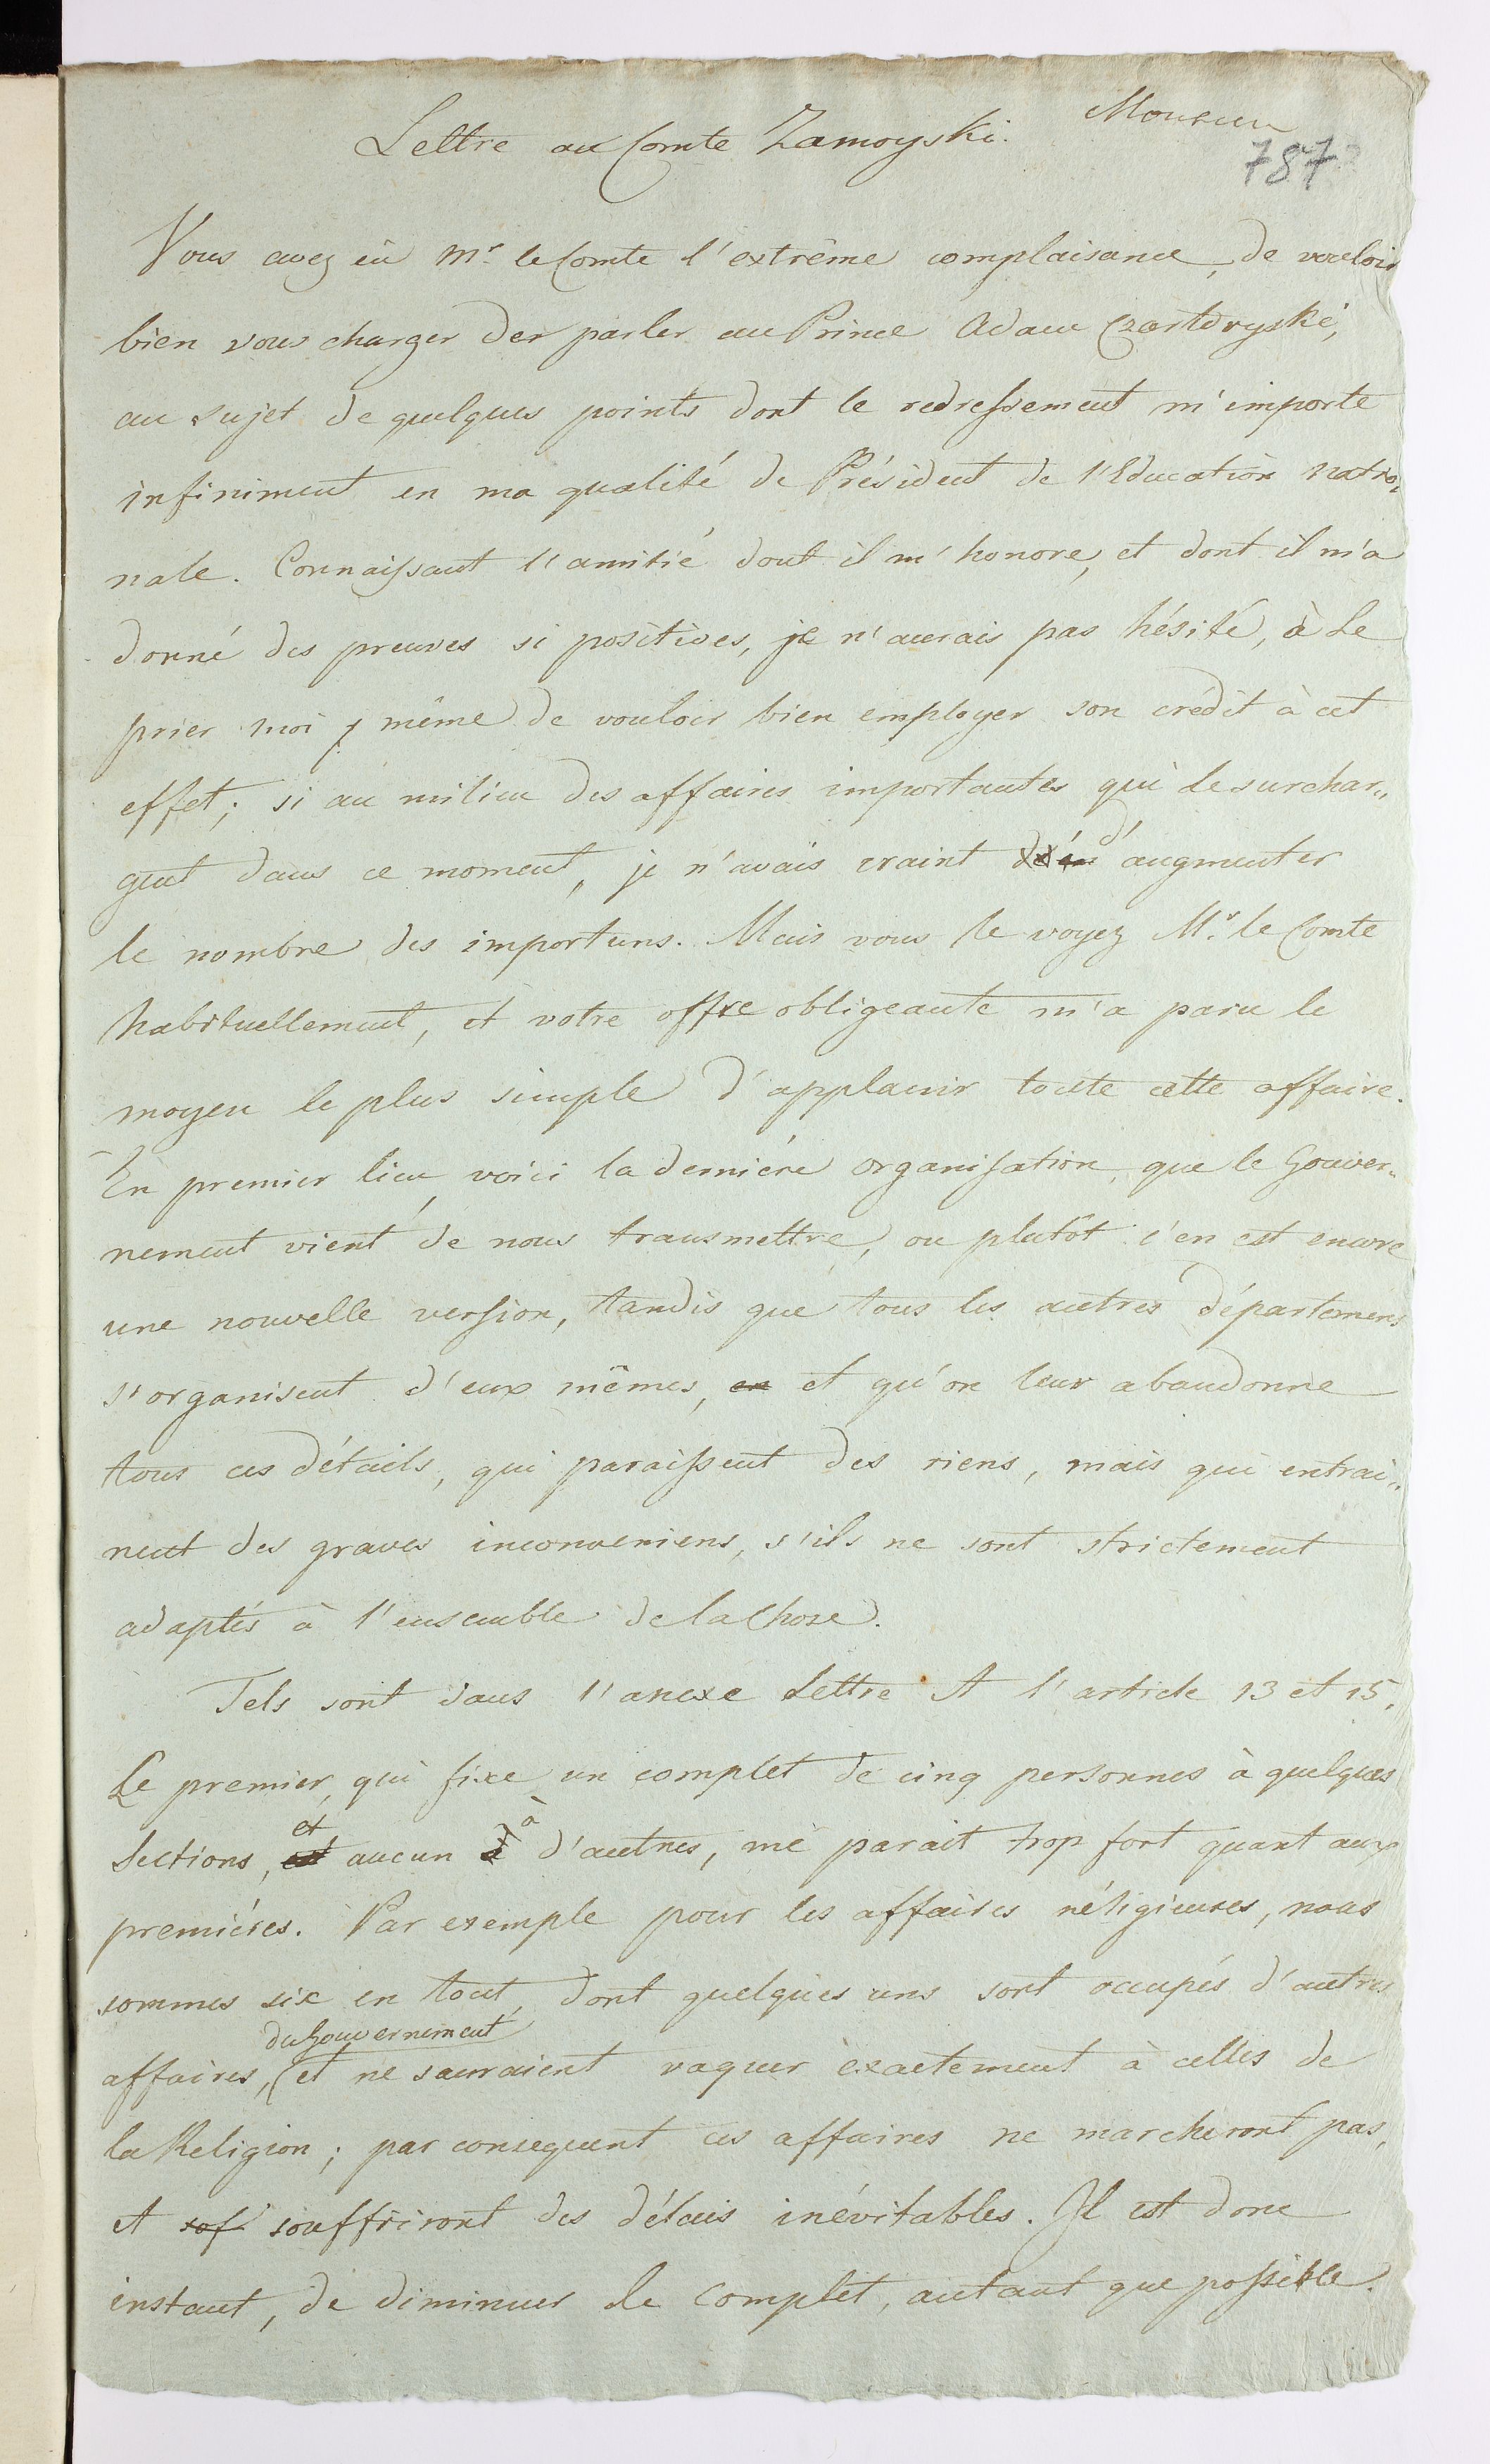 Lettre au Comte Zamoyski.
Monsieur
787
Vous avez eû Mr. le Comte l'extrême complaisance, de vouloir
bien vous charger der parler au Prince Adam Czartoryski,
au sujet de quelques points dont le redressement m'importe
infiniment en ma qualité de Président de l'Education natio„
nale. Connaissant l'amitié dout il m'honore, et dont il m'a
donné des preuves si positives, je n'aurais pas hésité, à Le
prier moi même de vouloir bien employer son crédit à cet
effet; si au milieu des affaires importantes qui Le surchar„
gent dans ce moment, je n'avais craint d'augmenter
le nombre des importuns. Mais vous le voyez Mr. le Comte
habituellement, et votre offre obligeante m'a paru le
moyen le plus simple d'applanir toute cette affaire.
En premier lieu, voici la derniére organisation, que le Gouver„
nement vient de nous transmettre, ou plutôt c'en est encore
une nouvelle version, tandis que tous les autres départemens
s'organisent d'eux mêmes, en et qu'on leur abandonne
tous ces détails, qui paraissent des riens, mais qui entrai„
nent des graves inconveniens, s'ils ne sont strictement
adaptés à l'ensemble de la Chose.
Tels sont dans l'anexe Lettre A l'article 13 et 15.
Le premier, qui fixe un complet de cinq personnes à quelques
Sections, et aucun à d'autres, me parait trop fort quant aux
premiéres. Par exemple pour les affaires réligieuses, nous
sommes six en tout, dont quelques uns sont occupés d'autres
du Gouvernement
affaires, (et ne sauraient vaquer exactement à celles de
la Religion; par consequent ces affaires ne marcheront pas,
et sof souffriront des délais inévitables. Il est donc
instant, de diminuer le Complet, autant que possible.